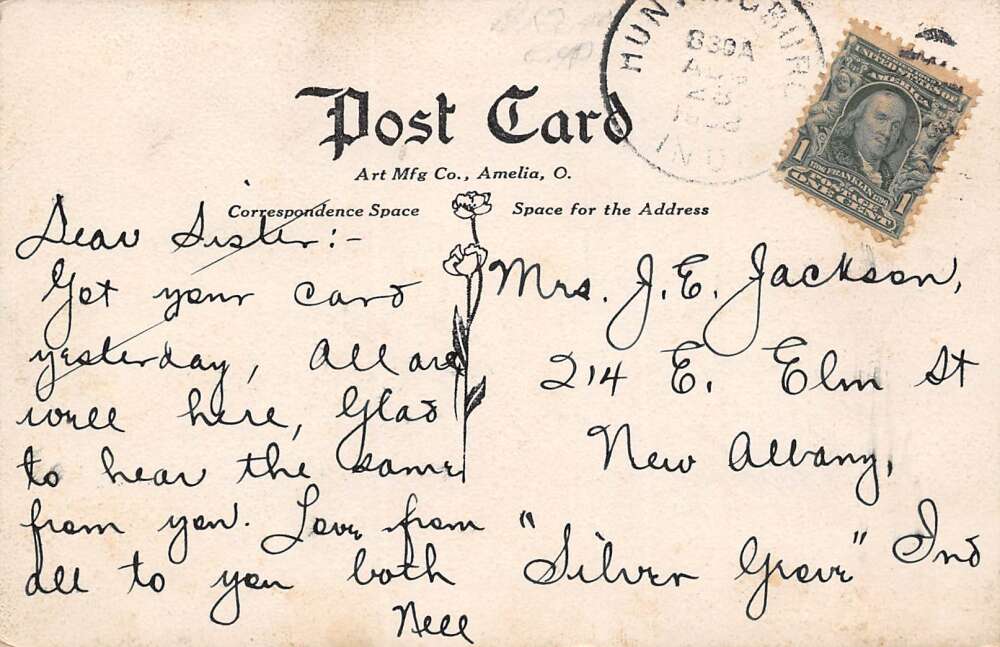 HUNTINGBURG
830A
AUG
23
IND
UNITED STATES OF
AMERICA
1 1
FRANKLIN
POSTAGE
ONE CENT
Post Card
Art Mfg Co., Amelia, O.
Correspondence Space
Space for the Address
Dear Sister:-
Got your card
yesterday, All are
well here, Glad
to hear the same
from you. Love from
all to you both
Nell
Mrs. J.E. Jackson,
214 E. Elm St
New Albany,
"Silver Grove" Ind